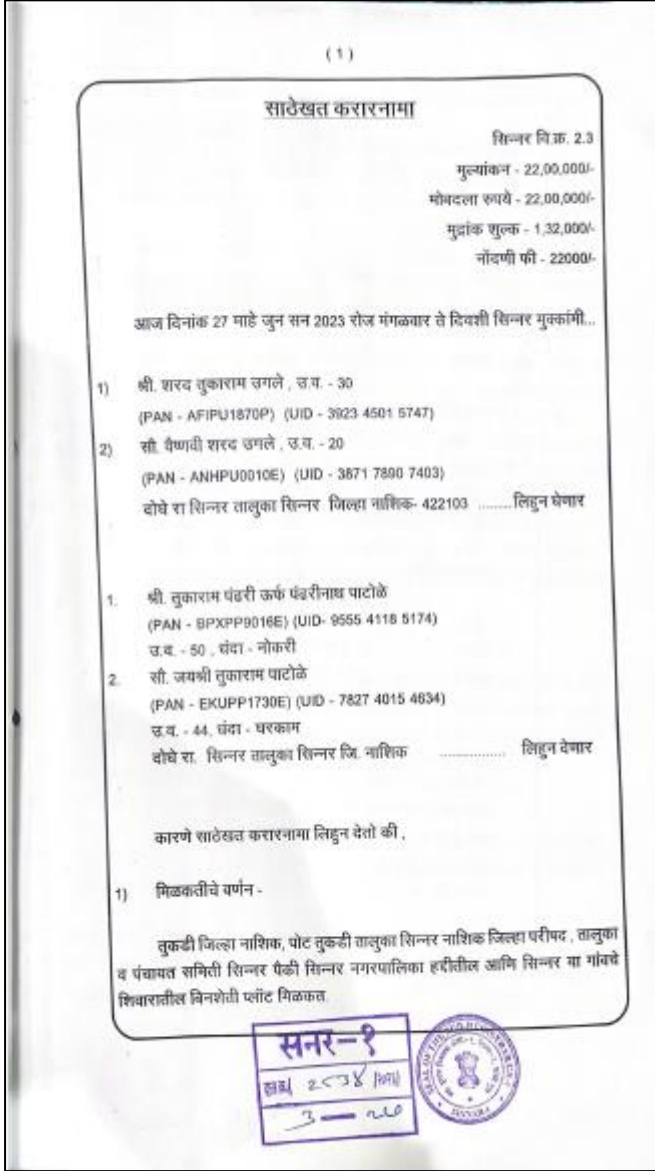 ( 1 )
साठेखत करारनामा
सिन्नर वि.क्र. 2.3
मुल्यांकन - 22,00,000/-
मोबदला रुपये - 22,00,000/-
मुद्रांक शुल्क - 1,32,000/-
नोंदणी फी - 22000/-
आज दिनांक 27 माहे जुन सन 2023 रोज मंगळवार ते दिवशी सिन्नर मुक्कांमी...
1) श्री. शरद तुकाराम उगले , उ.व. - 30
(PAN - AFIPU1870P) (UID - 3923 4501 5747)
2) सौ. वैष्णवी शरद उगले , उ.व. - 20
(PAN - ANHPU0010E) (UID - 3871 7890 7403)
दोघे रा सिन्नर तालुका सिन्नर जिल्हा नाशिक- 422103 ........लिहुन घेणार
1. श्री. तुकाराम पंढरी ऊर्फ पंढरीनाथ पाटोळे
(PAN - BPXPP9016E) (UID- 9555 4118 5174)
उ.व. - 50 , धंदा - नोकरी
2. सौ. जयश्री तुकाराम पाटोळे
(PAN - EKUPP1730E) (UID - 7827 4015 4634)
उ.व. - 44, धंदा - घरकाम
दोघे रा. सिन्नर तालुका सिन्नर जि. नाशिक ............... लिहुन देणार
कारणे साठेखत करारनामा लिहुन देतो की ,
1) मिळकतीचे वर्णन -
तुकडी जिल्हा नाशिक, पोट तुकडी तालुका सिन्नर नाशिक जिल्हा परीषद , तालुका
व पंचायत समिती सिन्नर पैकी सिन्नर नगरपालिका हद्दीतील आणि सिन्नर या गांवचे
शिवारातील बिनशेती प्लॉट मिळकत.
सनर-१